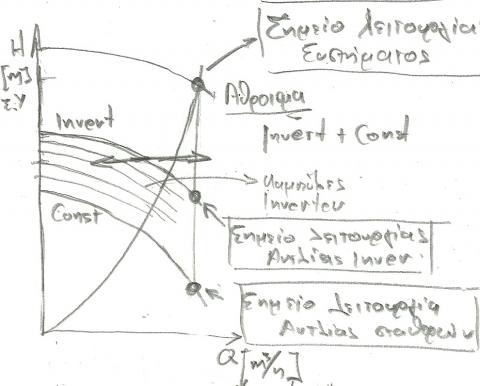 H
[m]
Σ.Υ
Σημείο λειτουργία
Συστήματος
Άθροισμα
Invert + Const
Invert
Καμπύλες
Inverter
Const
Σημείο λειτουργίας
Αντλίας Inver.
Σημείο λειτουργία
Αντλίας σταθερών
Q [m³/h]